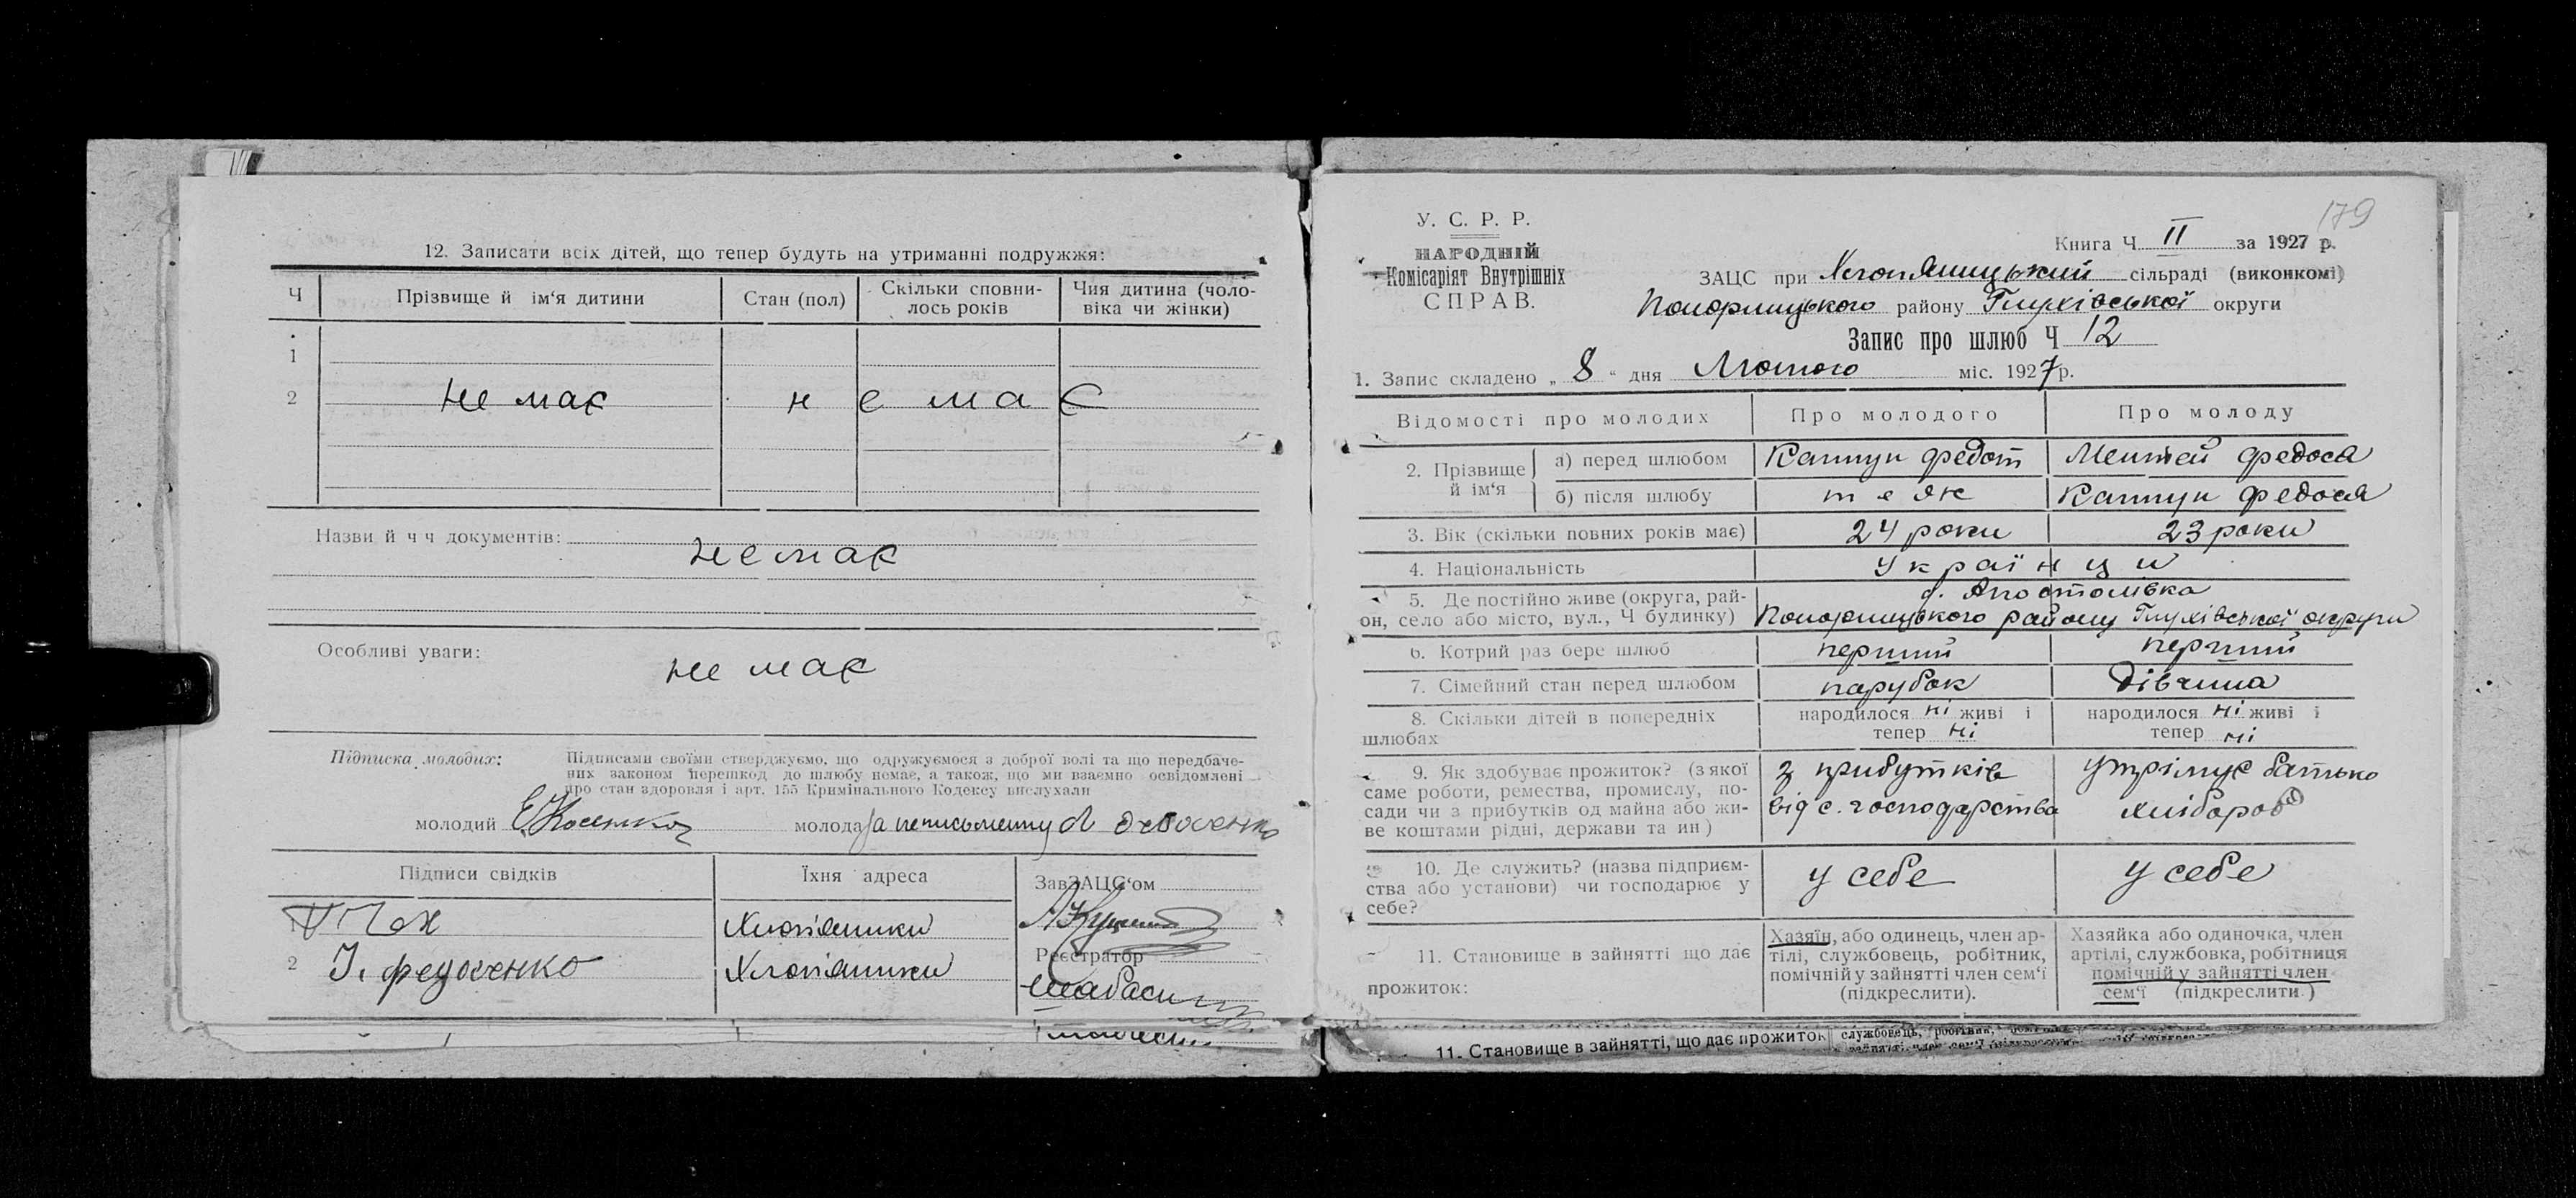 12. Записати всіх дітей, що тепер будуть на утриманні подружжя:
Ч
Прізвище й ім'я дитини
Стан (пол)
Скільки сповни-
лось років
Чия дитина (чоло-
віка чи жінки)
1
2 не має н е м а є
Назви й ч ч документів:
не має
Особливі уваги:
не має
Підписка молодих:
Підписами своїми стверджуємо, що одружуємося з доброї волі та що передбаче-
них законом перешкод до шлюбу немає, а також, що ми взаємно освідомлені
про стан здоровля і арт. 155 Кримінального Кодексу вислухали
молодий
молода за неписьменну
Підписи свідків
Їхня адреса
ЗавЗАЦС'ом
Хлоп'яники
Реєстратор
2 І. Федосенко Хлоп'яники
179
У. С. Р. Р.
НАРОДНІЙ
Комісаріят Внутрішніх
СПРАВ.
Книга Ч II за 1927 р.
ЗАЦС при Хлоп'яницький сільраді (виконкомі)
Понорницького району Глухівської округи
Запис про шлюб Ч 12
1. Запис складено „ 8 " дня Лютого міс. 1927 р.
Відомості про молодих
Про молодого
Про молоду
2. Прізвище
й ім'я
а) перед шлюбом Федот Федося
б) після шлюбу те як Федося
3. Вік (скільки повних років має) 24 роки 23 роки
4. Національність Українци
5. Де постійно живе (округа, рай-
он, село або місто, вул., Ч будинку)
с. Апостолівка
Понорницького району Глухівської округи
6. Котрий раз бере шлюб перший перший
7. Сімейний стан перед шлюбом парубок дівчина
8. Скільки дітей в попередніх
шлюбах
народилося ні живі і
тепер ні
народилося ні живі і
тепер ні
9. Як здобуває прожиток? (з якої
саме роботи, ремества, промислу, по-
сади чи з прибутків од майна або жи-
ве коштами рідні, держави та ин)
з прибутків
від с. господарства
утрімує батько
хлібороб
10. Де служить? (назва підприєм-
ства або установи) чи господарює у
себе?
у себе
у себе
11. Становище в зайнятті що дає
прожиток:
Хазяїн, або одинець, член ар-
тілі, службовець, робітник,
помічній у зайнятті член сем'ї
(підкреслити).
Хазяйка або одиночка, член
артілі, службовка, робітниця
помічній у зайнятті член
сем'ї (підкреслити)
11. Становище в зайнятті, що дає прожиток